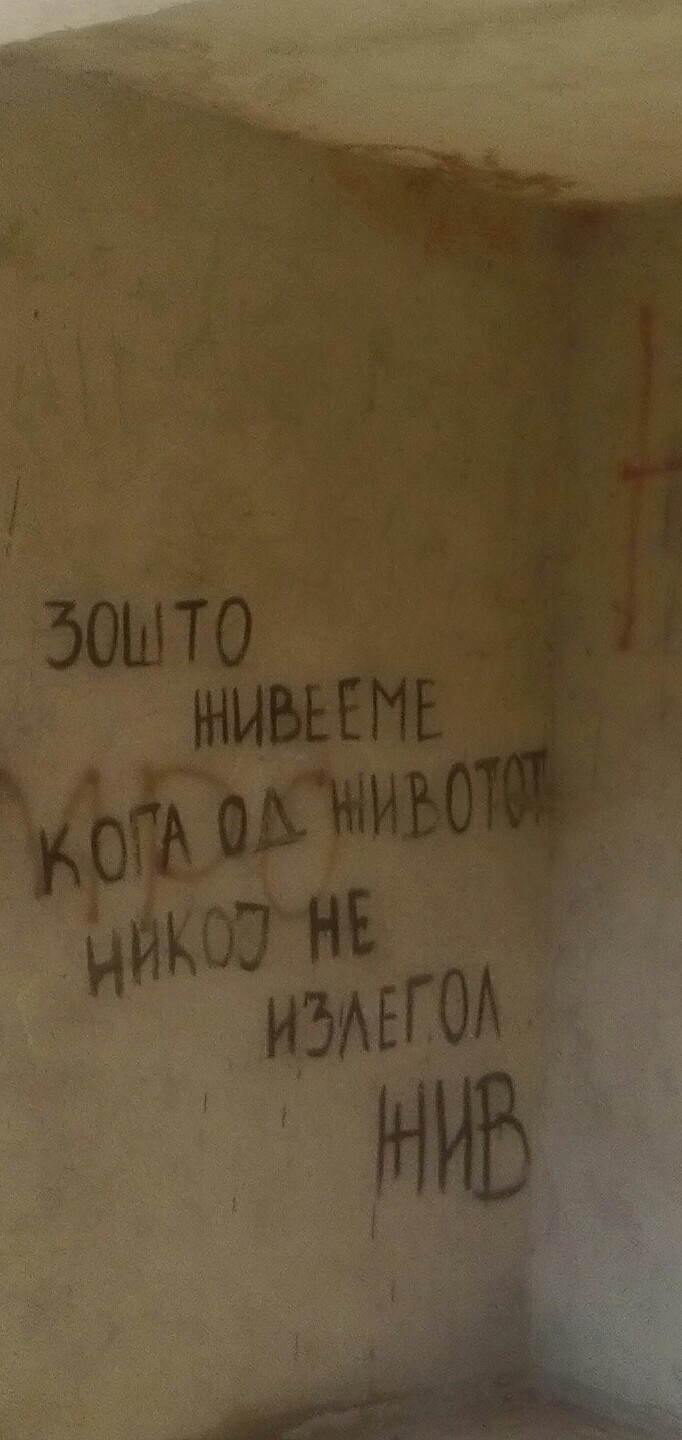 ЗОШТО
ЖИВЕЕМЕ
КОГА ОД ЖИВОТОТ
НИКОЈ НЕ
ИЗЛЕГОЛ
ЖИВ